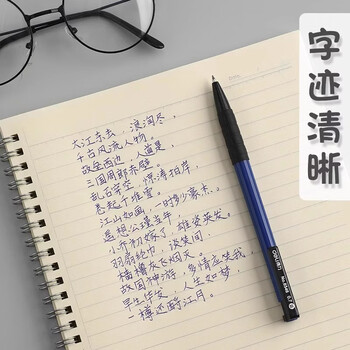 字迹清晰
大江东去，浪淘尽，
千古风流人物。
故垒西边，人道是，
三国周郎赤壁。
乱石穿空，惊涛拍岸，
卷起千堆雪。
江山如画，一时多少豪杰。
遥想公瑾当年，
小乔初嫁了，雄姿英发。
羽扇纶巾，谈笑间，
樯橹灰飞烟灭。
故国神游，多情应笑我，
早生华发，人生如梦，
一樽还酹江月。
deli